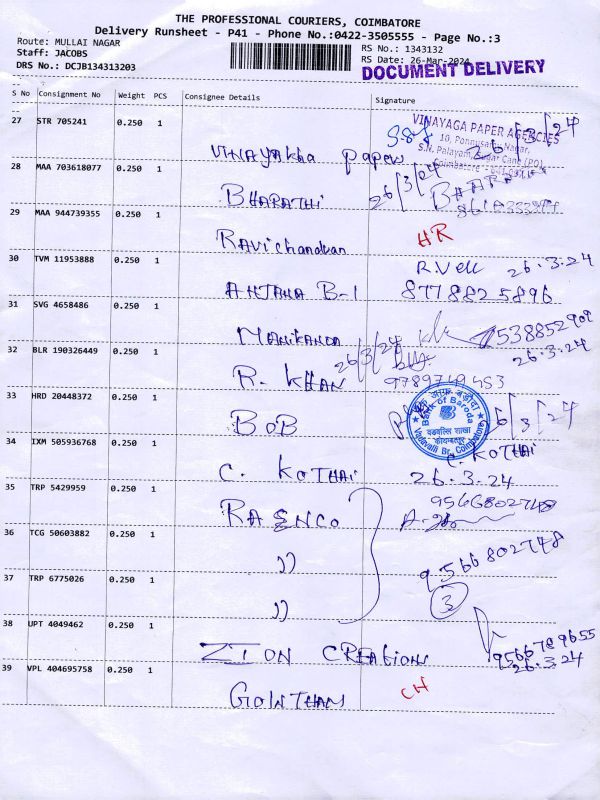 THE PROFESSIONAL COURIERS, COIMBATORE
Delivery Runsheet - P41 - Phone No.:0422-3505555 - Page No.:3
Route: MULLAI NAGAR
Staff: JACOBS
DRS No.: DCJB134313203
RS No.: 1343132
RS Date: 26-Mar-2024
DOCUMENT DELIVERY
S No Consignment No Weight PCS Consignee Details Signature
27 STR 705241 0.250 1
VINAYAGA PAPER AGENCIES
10, Ponnusamy Nagar,
26/3/24
VINAYAKha papers
28 MAA 703618077 0.250 1
26/3/24
BHARATHI
29 MAA 944739355 0.250 1
RAVichandran HR
30 TVM 11953888 0.250 1
26.3.24
AHJANA B-1 8778825896
31 SVG 4658486 0.250 1
MANIKANDA
26.3.24
32 BLR 190326449 0.250 1
26/3/24
R. KHAN 9789749453
33 HRD 20448372 0.250 1
Bank of Baroda
BOB
26/3/24
34 IXM 505936768 0.250 1
C. KOTHAI
C. KOTHAI 26.3.24
35 TRP 5429959 0.250 1
9566802748
RAENCO
36 TCG 50603882 0.250 1
9566802748
))
37 TRP 6775026 0.250 1
)) 3
38 UPT 4049462 0.250 1
ZION CREATIONS
9566789655
26.3.24
39 VPL 404695758 0.250 1
GOWTHAM CH